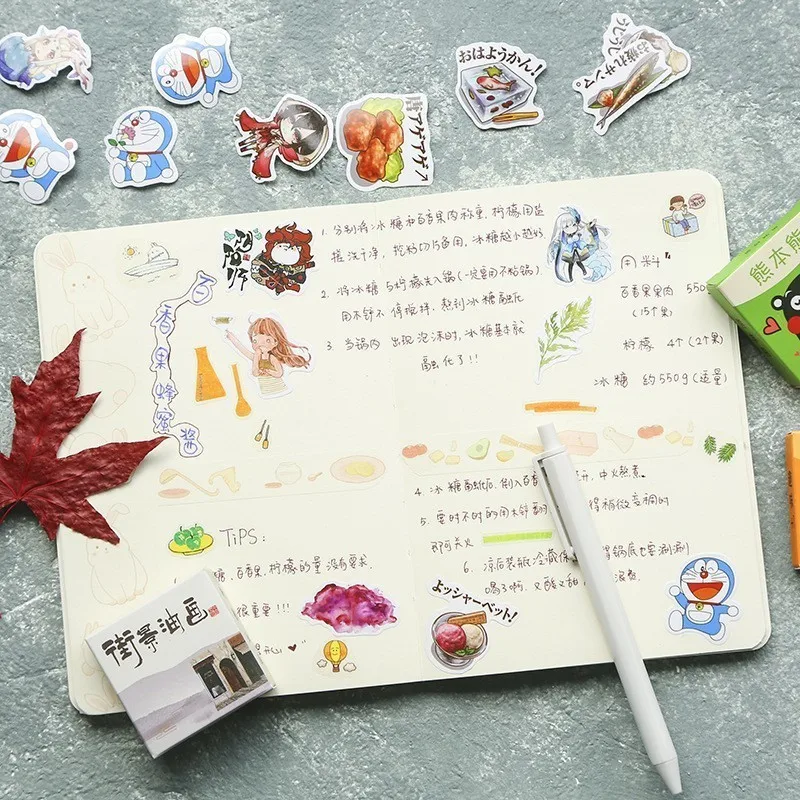 おはようかん!
お疲れサーん。
アゲアゲ↗
百香果蜂蜜酱
阴阳师
1. 分别将冰糖和百香果肉称重. 柠檬用盐
搓洗干净, 挖籽切片备用. 冰糖越小越好
2. 将冰糖与柠檬放入锅(一定要用不粘锅).
用木铲不停搅拌. 熬到冰糖融化
3. 当锅内 出现泡沫时, 冰糖基本就
融化了!!
用料
百香果果肉 550
(15个果)
柠檬 4个(2个果)
冰糖 约550g(适量)
4. 冰糖融化后. 倒入百香 中火熬煮.
5. 要时不时的用木铲翻 得稍微变稠时
即可关火
6. 凉后装瓶冷藏保 得锅底也要涮涮
喝了啊. 又酸又甜
TiPS:
糖. 百香果. 柠檬的量 没有要求.
很重要!!!
よッシャーベット!
街景油画
熊本熊